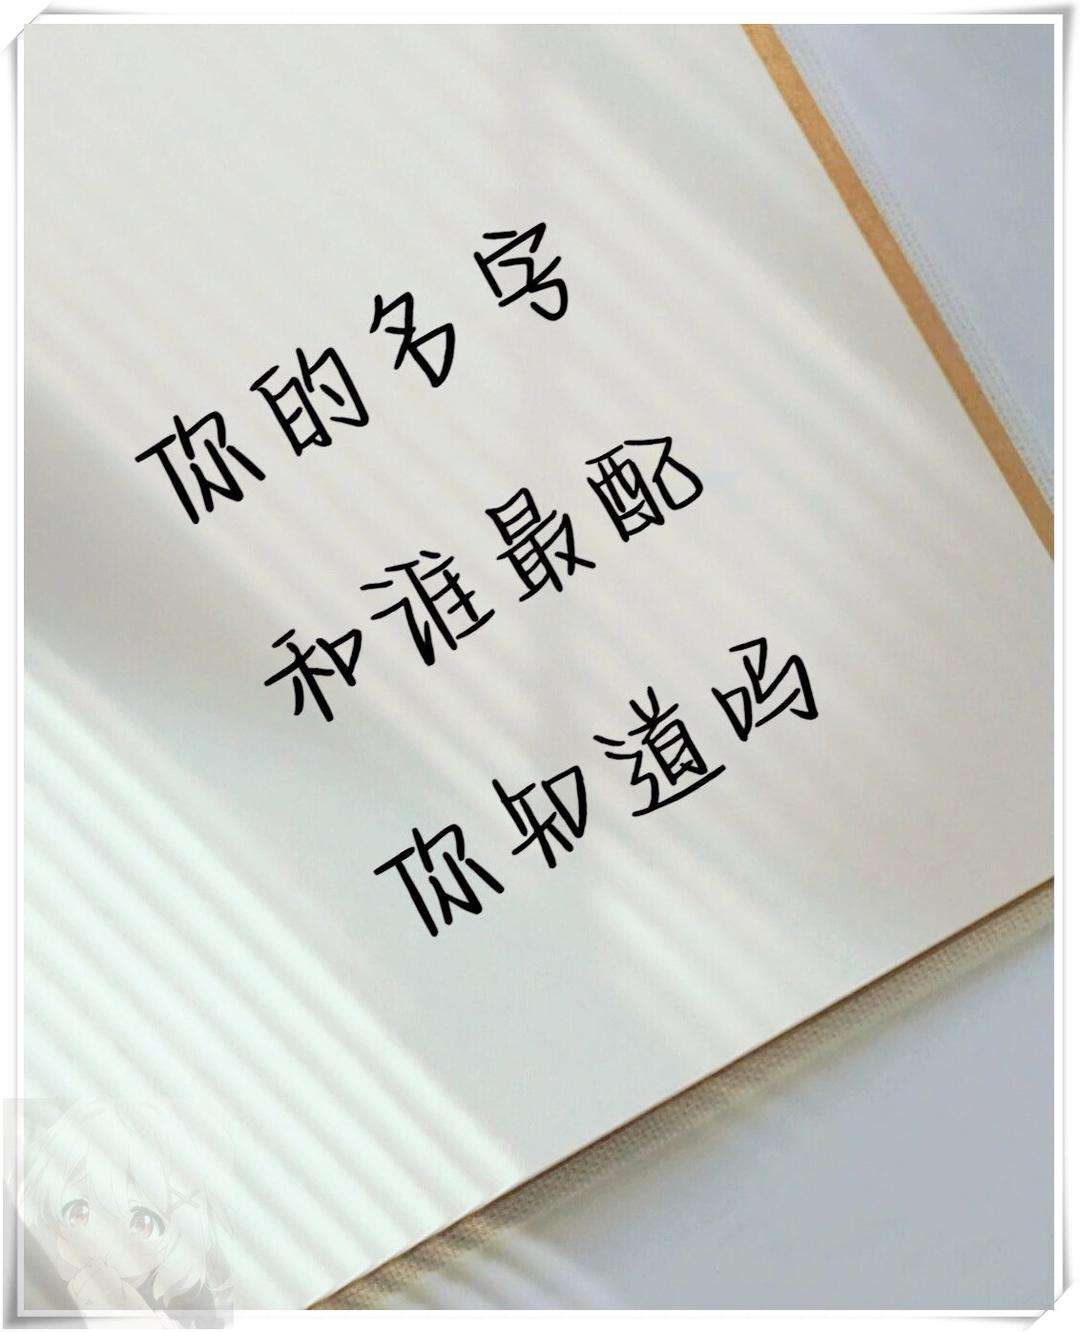 你的名字
和谁最配
你知道吗